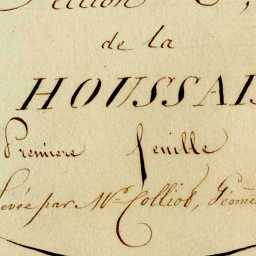 Section
de la
HOUSSAI
Premiere feuille
Levée par Mr. Colliot, Géomè